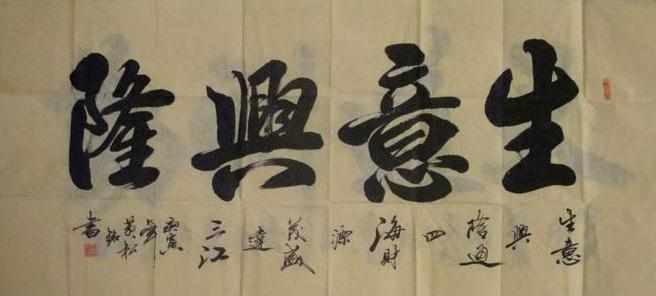 生意興隆
生意
興
隆通
四
海財
源
茂盛
達
三江
庚寅
年
黃松
書